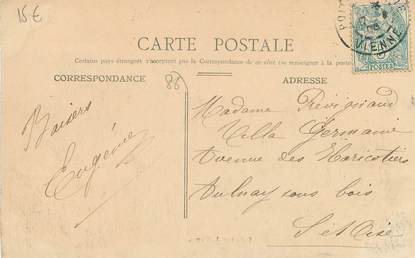 15€
CARTE POSTALE
Certains pays étrangers n'acceptent pas la Correspondance de ce côté (se renseigner à la poste)
CORRESPONDANCE
86
ADRESSE
Baisers
Eugénie
Madame
Villa Germaine
Avenue des Haricotiers
Aulnay sous bois
S et Oise
VIENNE
POSTES